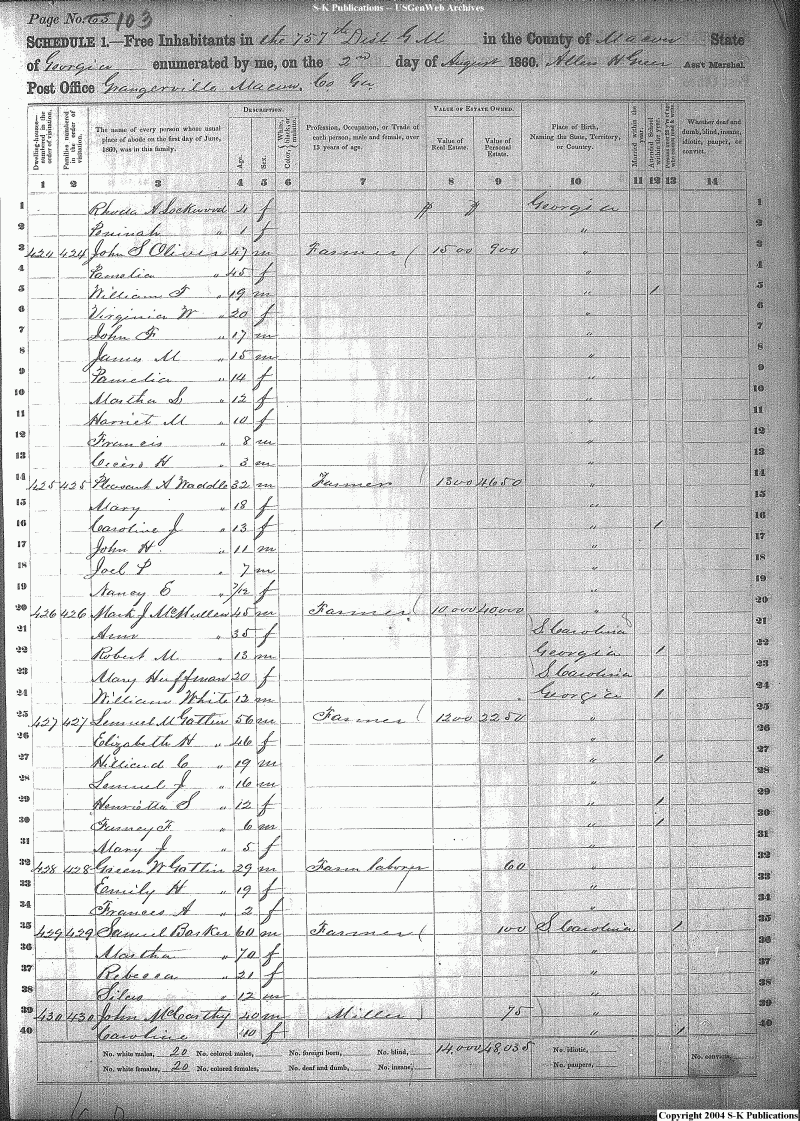 S-K Publications -- USGenWeb Archives
Page No. 103
SCHEDULE 1.—Free Inhabitants in the 757th Dist G M in the County of Macon State
of Georgia enumerated by me, on the 2nd day of August 1860. Allen H Greer Ass't Marshal.
Post Office Grangerville Macon Co Ga
Dwelling-houses—numbered in the order of visitation. Families numbered in the order of visitation. The name of every person whose usual place of abode on the first day of June, 1860, was in this family. DESCRIPTION. Age. Sex. Color, White, black, or mulatto. Profession, Occupation, or Trade of each person, male and female, over 15 years of age. VALUE OF ESTATE OWNED. Value of Real Estate. Value of Personal Estate. Place of Birth, Naming the State, Territory, or Country. Married within the year. Attended School within the year. Whether deaf and dumb, blind, insane, idiotic, pauper, or convict.
1 2 3 4 5 6 7 8 9 10 11 12 13 14
1 Rhoda A Lockwood 4 f $ $ Georgia 1
2 " 1 f " 2
3 424 424 John S Oliver 47 m Farmer 1500 900 " 3
4 Pamelia " 45 f " 4
5 William F " 19 m " 1 5
6 Virginia W " 20 f " 6
7 John F " 17 m " 7
8 James M " 15 m " 8
9 Pamelia " 14 f " 9
10 Martha S " 12 f " 10
11 Harriet M " 10 f " 11
12 Francis " 8 m " 12
13 Cicero H " 3 m " 13
14 425 425 Pleasant A Waddle 32 m Farmer 1300 4650 " 14
15 Mary " 18 f " 15
16 Caroline J " 13 f " 1 16
17 John H. " 11 m " 17
18 Joel P " 7 m " 18
19 Nancy E " 7/12 f " 19
20 426 426 Mark J McMullen 45 m Farmer 10,000 40,000 " 20
21 Ann " 35 f S Carolina 21
22 Robert M " 13 m Georgia 1 22
23 Mary Huffman 20 f S Carolina 23
24 William White 12 m Georgia 1 24
25 427 427 Semuel M Gattin 56 m Farmer 1200 2250 " 25
26 Elizabeth H " 46 f " 26
27 Hilliard C " 19 m " 1 27
28 Semuel J " 16 m " 28
29 Henrietta S " 12 f " 1 29
30 Furney F " 6 m " 1 30
31 Mary J " 5 f " 31
32 428 428 Green W Gattin 29 m Farm laborer 60 " 32
33 Emily H " 19 f " 33
34 Frances A " 2 f " 34
35 429 429 Samuel Barker 60 m Farmer 100 S Carolina 1 35
36 Martha " 70 f " 36
37 Rebecca " 21 f " 37
38 Silas " 12 m " 38
39 430 430 John McCarthy 40 m Miller 75 " 39
40 Caroline " 40 f " 1 40
No. white males, 20 No. colored males, No. foreign born, No. blind, 14,000 48,035 No. idiotic, No. convicts,
No. white females, 20 No. colored females, No. deaf and dumb, No. insane, No. paupers,
Copyright 2004 S-K Publications